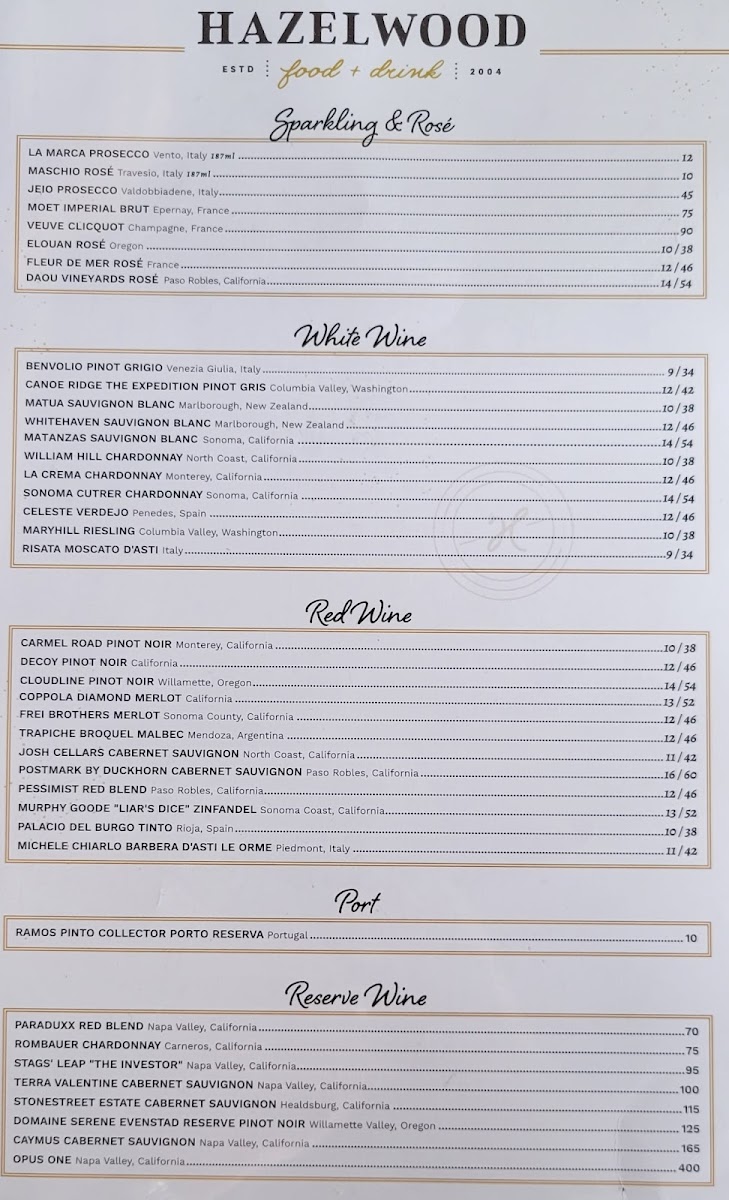 HAZELWOOD
ESTD food + drink 2004
Sparkling & Rosé
LA MARCA PROSECCO Vento, Italy 187ml 12
MASCHIO ROSÉ Travesio, Italy 187ml 10
JEIO PROSECCO Valdobbiadene, Italy 45
MOET IMPERIAL BRUT Epernay, France 75
VEUVE CLICQUOT Champagne, France 90
ELOUAN ROSÉ Oregon 10/38
FLEUR DE MER ROSÉ France 12/46
DAOU VINEYARDS ROSÉ Paso Robles, California 14/54
White Wine
BENVOLIO PINOT GRIGIO Venezia Giulia, Italy 9/34
CANOE RIDGE THE EXPEDITION PINOT GRIS Columbia Valley, Washington 12/42
MATUA SAUVIGNON BLANC Marlborough, New Zealand 10/38
WHITEHAVEN SAUVIGNON BLANC Marlborough, New Zealand 12/46
MATANZAS SAUVIGNON BLANC Sonoma, California 14/54
WILLIAM HILL CHARDONNAY North Coast, California 10/38
LA CREMA CHARDONNAY Monterey, California 12/46
SONOMA CUTRER CHARDONNAY Sonoma, California 14/54
CELESTE VERDEJO Penedes, Spain 12/46
MARYHILL RIESLING Columbia Valley, Washington 10/38
RISATA MOSCATO D'ASTI Italy 9/34
Red Wine
CARMEL ROAD PINOT NOIR Monterey, California 10/38
DECOY PINOT NOIR California 12/46
CLOUDLINE PINOT NOIR Willamette, Oregon 14/54
COPPOLA DIAMOND MERLOT California 13/52
FREI BROTHERS MERLOT Sonoma County, California 12/46
TRAPICHE BROQUEL MALBEC Mendoza, Argentina 12/46
JOSH CELLARS CABERNET SAUVIGNON North Coast, California 11/42
POSTMARK BY DUCKHORN CABERNET SAUVIGNON Paso Robles, California 16/60
PESSIMIST RED BLEND Paso Robles, California 12/46
MURPHY GOODE "LIAR'S DICE" ZINFANDEL Sonoma Coast, California 13/52
PALACIO DEL BURGO TINTO Rioja, Spain 10/38
MICHELE CHIARLO BARBERA D'ASTI LE ORME Piedmont, Italy 11/42
Port
RAMOS PINTO COLLECTOR PORTO RESERVA Portugal 10
Reserve Wine
PARADUXX RED BLEND Napa Valley, California 70
ROMBAUER CHARDONNAY Carneros, California 75
STAGS' LEAP "THE INVESTOR" Napa Valley, California 95
TERRA VALENTINE CABERNET SAUVIGNON Napa Valley, California 100
STONESTREET ESTATE CABERNET SAUVIGNON Healdsburg, California 115
DOMAINE SERENE EVENSTAD RESERVE PINOT NOIR Willamette Valley, Oregon 125
CAYMUS CABERNET SAUVIGNON Napa Valley, California 165
OPUS ONE Napa Valley, California 400